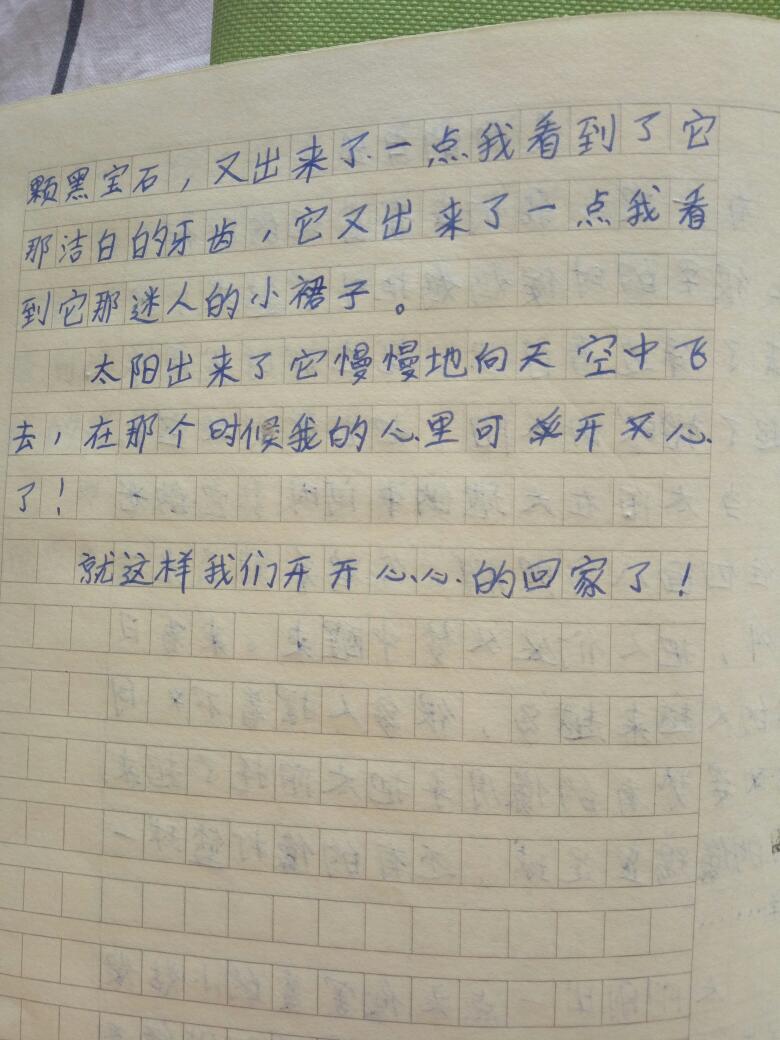 颗黑宝石，又出来了一点我看到了它
那洁白的牙齿，它又出来了一点我看
到它那迷人的小裙子。
太阳出来了它慢慢地向天空中飞
去，在那个时候我的心里可开心
了！
就这样我们开开心心的回家了！